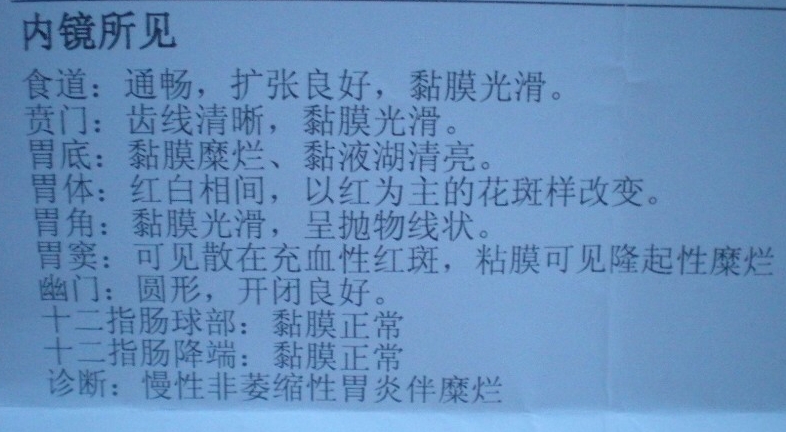 内镜所见
食道：通畅，扩张良好，黏膜光滑。
贲门：齿线清晰，黏膜光滑。
胃底：黏膜糜烂、黏液湖清亮。
胃体：红白相间，以红为主的花斑样改变。
胃角：黏膜光滑，呈抛物线状。
胃窦：可见散在充血性红斑，粘膜可见隆起性糜烂
幽门：圆形，开闭良好。
十二指肠球部：黏膜正常
十二指肠降端：黏膜正常
诊断：慢性非萎缩性胃炎伴糜烂